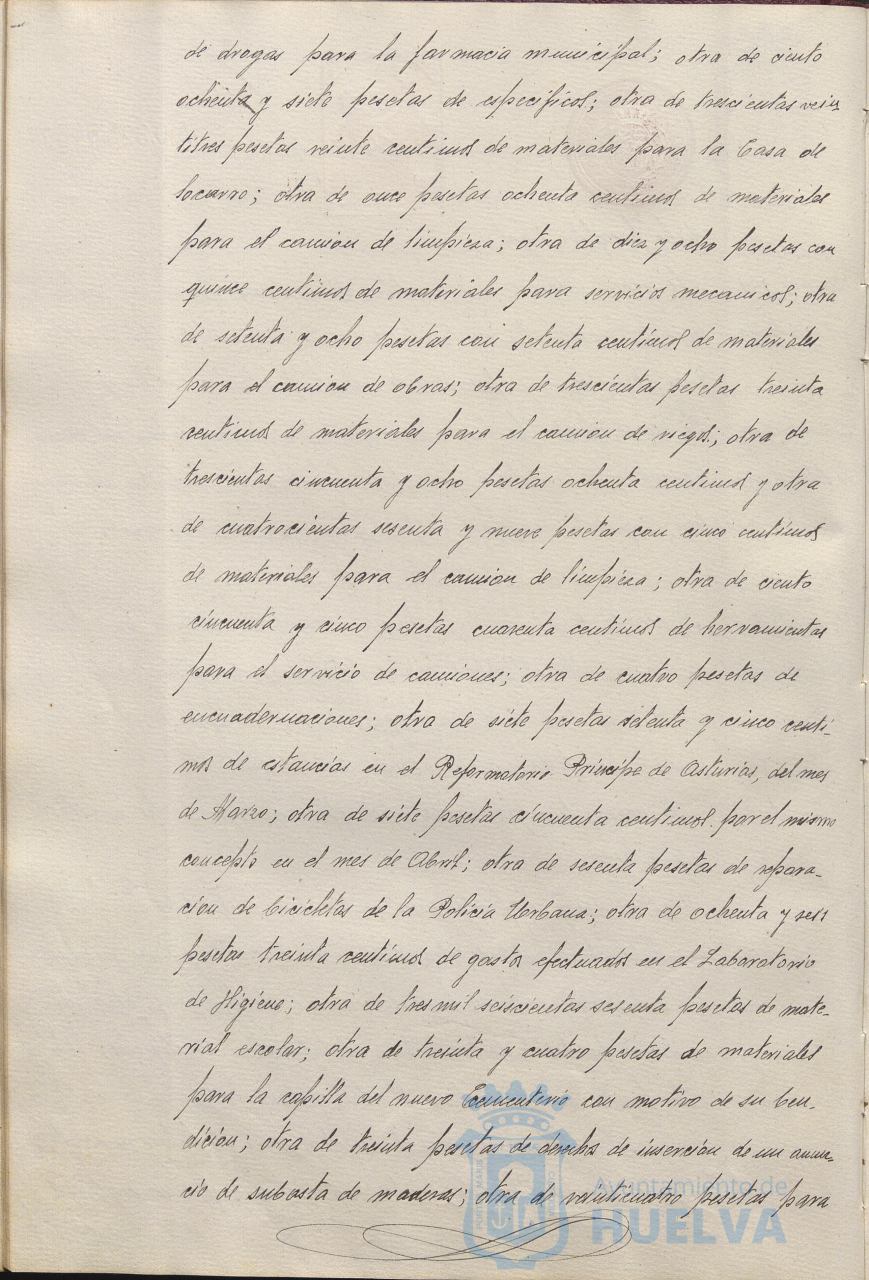 de drogas para la farmacia municipal; otra de ciento
ochenta y siete pesetas de especificos; otra de trescientas vein
titres pesetas veinte centimos de materiales para la Casa de
Socorro; otra de once pesetas ochenta centimos de materiales
para el camion de limpieza; otra de diez y ocho pesetas con
quince centimos de materiales para servicios mecanicos; otra
de setenta y ocho pesetas con setenta centimos de materiales
para el camion de obras; otra de trescientas pesetas treinta
centimos de materiales para el camion de riegos; otra de
trescientas cincuenta y ocho pesetas ochenta centimos y otra
de cuatrocientas sesenta y nueve pesetas con cinco centimos
de materiales para el camion de limpieza; otra de ciento
cincuenta y cinco pesetas cuarenta centimos de herramientas
para el servicio de camiones; otra de cuatro pesetas de
encuadernaciones; otra de siete pesetas setenta y cinco centi-
mos de estancias en el Reformatorio Principe de Asturias, del mes
de Marzo; otra de siete pesetas cincuenta centimos por el mismo
concepto en el mes de Abril; otra de sesenta pesetas de repara-
cion de bicicletas de la Policia Urbana; otra de ochenta y seis
pesetas treinta centimos de gastos efectuados en el Laboratorio
de Higiene; otra de tres mil seiscientas sesenta pesetas de mate-
rial escolar; otra de treinta y cuatro pesetas de materiales
para la capilla del nuevo Cementerio con motivo de su ben-
dición; otra de treinta pesetas de derechos de inserción de un anun-
cio de subasta de maderas; otra de veinticuatro pesetas para
Ayuntamiento de
HUELVA